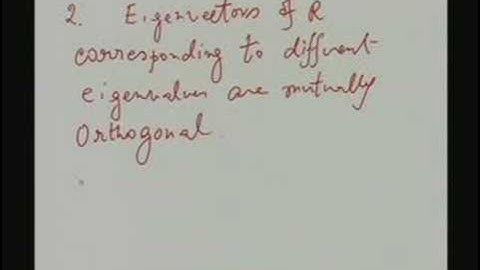 2. Eigenvectors of R
corresponding to different
eigenvalues are mutually
Orthogonal.